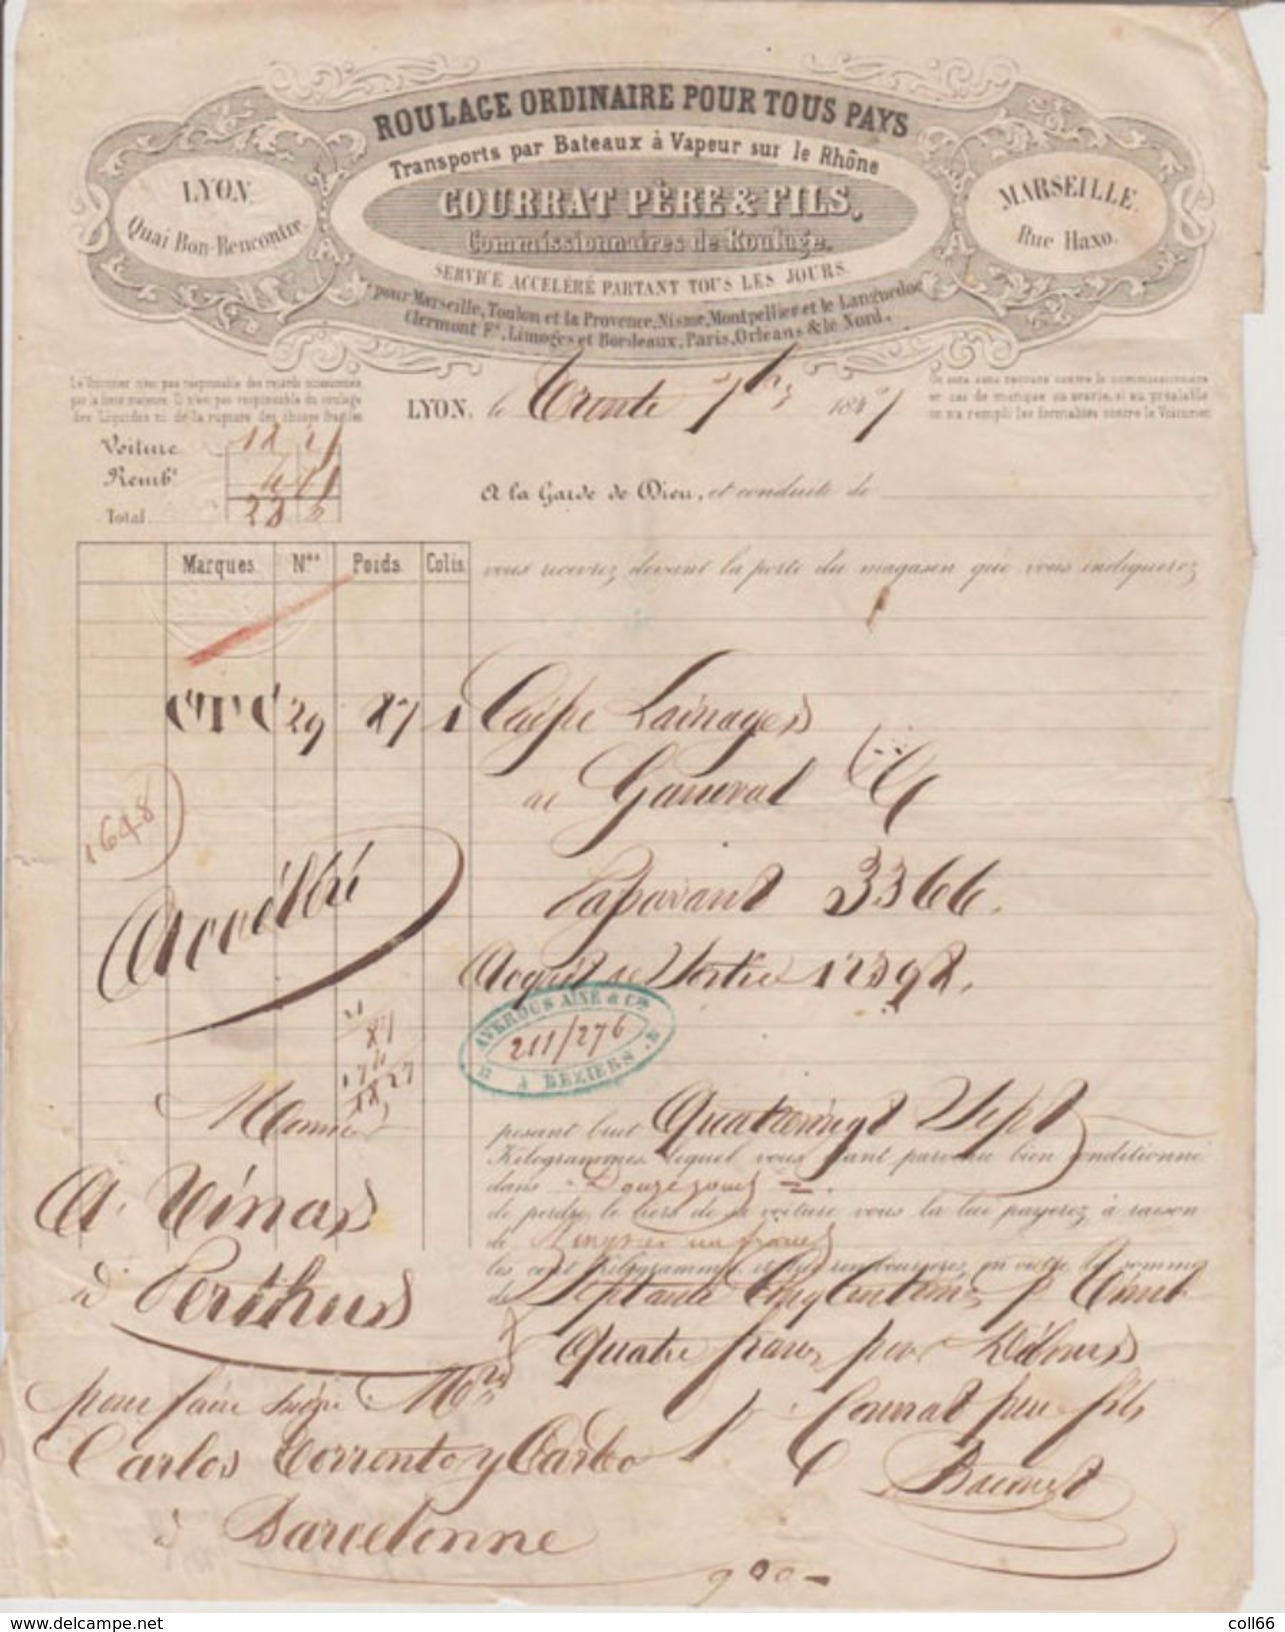 ROULAGE ORDINAIRE POUR TOUS PAYS
Transports par Bateaux à Vapeur sur le Rhône
COURRAT PÈRE & FILS,
Commissionnaires de Roulage.
SERVICE ACCELÉRÉ PARTANT TOUS LES JOURS
pour Marseille, Toulon et la Provence, Nisme, Montpellier et le Languedoc
Clermont Fd, Limoges et Bordeaux, Paris, Orleans & le Nord.
LYON.
Quai Bon-Rencontre.
MARSEILLE.
Rue Haxo.
Le Voiturier n'est pas responsable des retards occasionnés
par la force majeure. Il n'est pas responsable du coulage
des Liquides ni de la rupture des choses fragiles
LYON, le Trente 7bre 1847
On sera sans recours contre le commissionnaire
en cas de manque ou avarie, si au préalable
on n'a rempli les formalités contre le Voiturier
Voiture 18 27
Rembt
Total
A la Garde de Dieu, et conduite de
Marques Nos Poids Colis
vous recevrez devant la porte du magasin que vous indiquerez
CTC 29 87 1 Caisse Lainages
1648
Passavant 3366.
Accéléré
Acquit de Sortie 12398.
AVEROUS AINÉ & Cie
211/276
A BEZIERS
87
18 27
pesant brut Quatrevingt Sept
Kilogrammes, lequel vous étant parvenu bien conditionné
dans Douze jours
de perdre le tiers de sa voiture vous la lui payerez à raison
de Vingt et un francs
les cent Kilogrammes, et lui rembourserez en outre la somme
de
Quatre francs pour Débours
A. Vinas
à Perthus
pour faire suivre à Mrs
Carlos Torrents y Carbo
à Barcelonne
Courrat père fils
900
www.delcampe.net
coll66